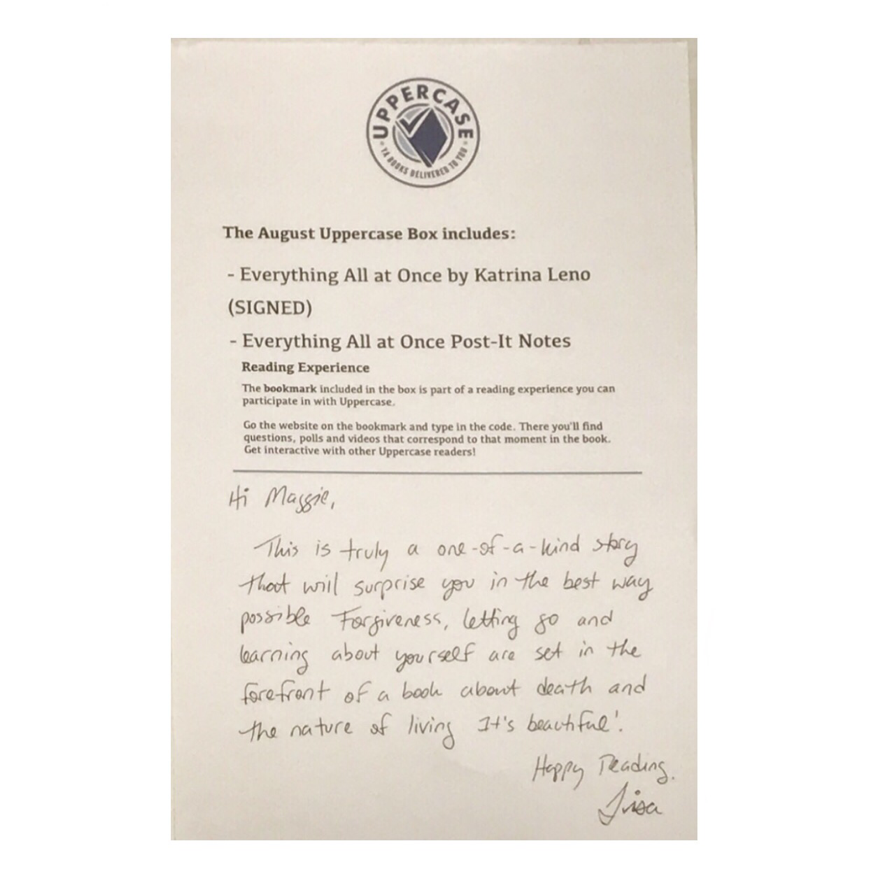 UPPERCASE
YA BOOKS DELIVERED TO YOU
The August Uppercase Box includes:
- Everything All at Once by Katrina Leno
(SIGNED)
- Everything All at Once Post-It Notes
Reading Experience
The bookmark included in the box is part of a reading experience you can
participate in with Uppercase.
Go the website on the bookmark and type in the code. There you'll find
questions, polls and videos that correspond to that moment in the book.
Get interactive with other Uppercase readers!
Hi Maggie,
This is truly a one-of-a-kind story
that will surprise you in the best way
possible Forgiveness, letting go and
learning about yourself are set in the
forefront of a book about death and
the nature of living It's beautiful!
Happy Reading.
Lisa